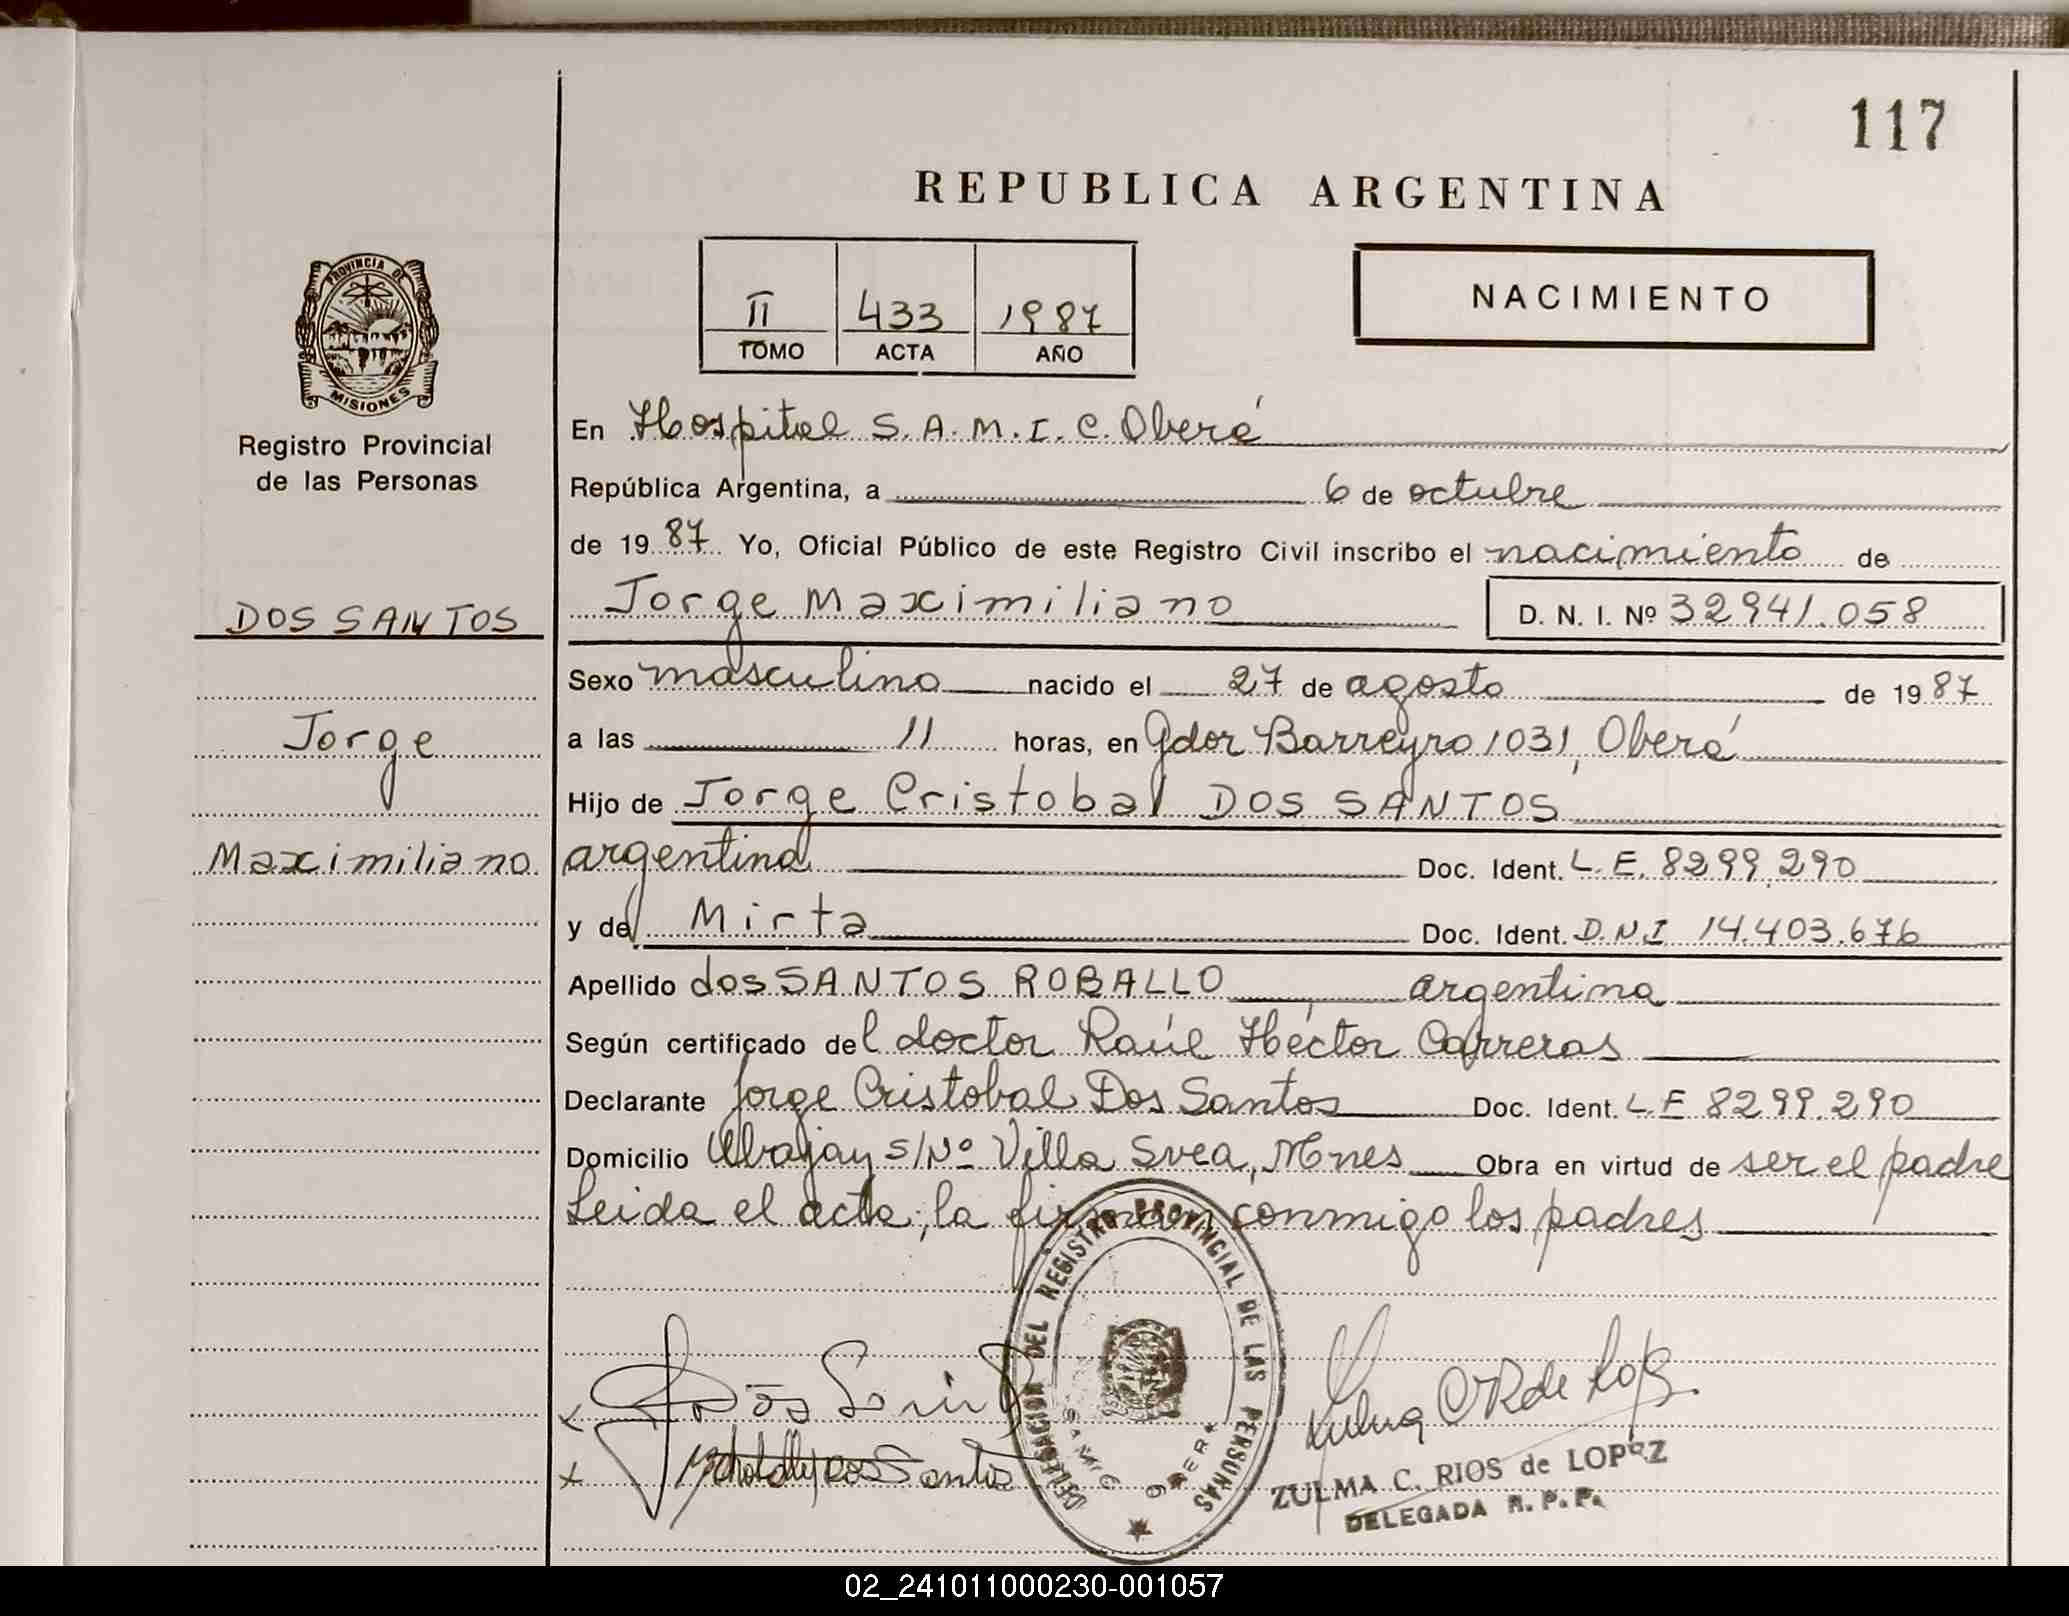 117
REPUBLICA ARGENTINA
II 433 1987
TOMO ACTA AÑO
NACIMIENTO
PROVINCIA DE
MISIONES
Registro Provincial
de las Personas
DOS SANTOS
Jorge
Maximiliano
En Hospital S.A.M.I.C. Oberá
República Argentina, a 6 de octubre
de 1987 Yo, Oficial Público de este Registro Civil inscribo el nacimiento de
Jorge Maximiliano D. N. I. Nº 32941.058
Sexo masculino nacido el 27 de agosto de 1987
a las 11 horas, en Gdor Barreyro 1031, Oberá
Hijo de Jorge Cristobal DOS SANTOS
argentina Doc. Ident. L.E. 8299.290
y de Mirta Doc. Ident. D.N.I 14.403.676
Apellido dos SANTOS ROBALLO argentina
Según certificado del doctor Raúl Héctor Carreras
Declarante Jorge Cristobal Dos Santos Doc. Ident. L.E 8299.290
Domicilio Ubajay S/Nº Villa Svea, Mnes Obra en virtud de ser el padre
Leida el acta, la firman conmigo los padres
DELEGACION DEL REGISTRO PROVINCIAL DE LAS PERSONAS
SAMIC OBERA
Dos Santos
Zulma C R de Lopez
ZULMA C. RIOS de LOPEZ
DELEGADA R. P. P.
02_241011000230-001057